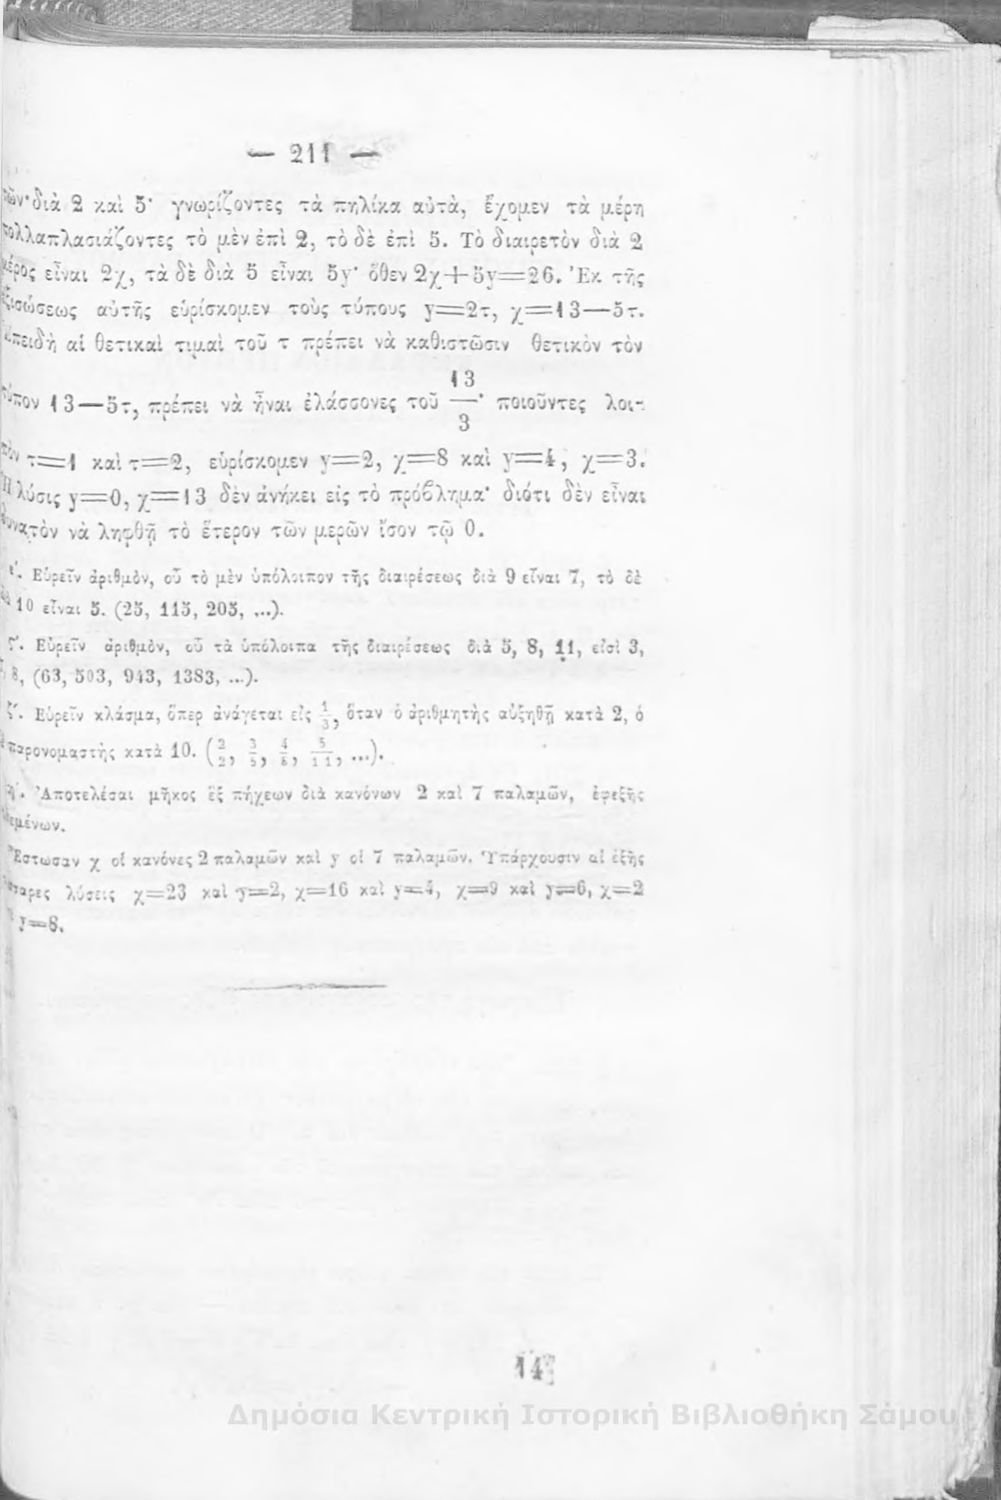 — 211 —
διὰ 2 καὶ 5· γνωρίζοντες τὰ πηλίκα αὐτὰ, ἔχομεν τὰ μέρη
πολλαπλασιάζοντες τὸ μὲν ἐπὶ 2, τὸ δὲ ἐπὶ 5. Τὸ διαιρετὸν διὰ 2
μέρος εἶναι 2χ, τὰ δὲ διὰ 5 εἶναι 5y· ὅθεν 2χ+5y=26. Ἐκ τῆς
ἐξισώσεως αὐτῆς εὑρίσκομεν τοὺς τύπους y=2τ, χ=13—5τ.
Ἐπειδὴ αἱ θετικαὶ τιμαὶ τοῦ τ πρέπει νὰ καθιστῶσιν θετικὸν τὸν
τύπον 13—5τ, πρέπει νὰ ἦναι ἐλάσσονες τοῦ 13/3· ποιοῦντες λοι-
πὸν τ=1 καὶ τ=2, εὑρίσκομεν y=2, χ=8 καὶ y=4, χ=3.
Ἡ λύσις y=0, χ=13 δὲν ἀνήκει εἰς τὸ πρόβλημα· διότι δὲν εἶναι
δυνατὸν νὰ ληφθῇ τὸ ἕτερον τῶν μερῶν ἴσον τῷ 0.
ε'. Εὑρεῖν ἀριθμὸν, οὗ τὸ μὲν ὑπόλοιπον τῆς διαιρέσεως διὰ 9 εἶναι 7, τὸ δὲ
διὰ 10 εἶναι 5. (25, 115, 205, ...).
ς'. Εὑρεῖν ἀριθμὸν, οὗ τὰ ὑπόλοιπα τῆς διαιρέσεως διὰ 5, 8, 11, εἰσὶ 3,
8, (63, 503, 943, 1383, ...).
ζ'. Εὑρεῖν κλάσμα, ὅπερ ἀνάγεται εἰς 1/3, ὅταν ὁ ἀριθμητὴς αὐξηθῇ κατὰ 2, ὁ
παρονομαστὴς κατὰ 10. (2/2, 3/5, 4/8, 5/11, ...).
η'. Ἀποτελέσαι μῆκος ἓξ πήχεων διὰ κανόνων 2 καὶ 7 παλαμῶν, ἐφεξῆς
Ἔστωσαν χ οἱ κανόνες 2 παλαμῶν καὶ y οἱ 7 παλαμῶν. Ὑπάρχουσιν αἱ ἑξῆς
λύσεις χ=23 καὶ y=2, χ=16 καὶ y=4, χ=9 καὶ y=6, χ=2
y=8.
14
Δημόσια Κεντρική Ιστορική Βιβλιοθήκη Σάμου